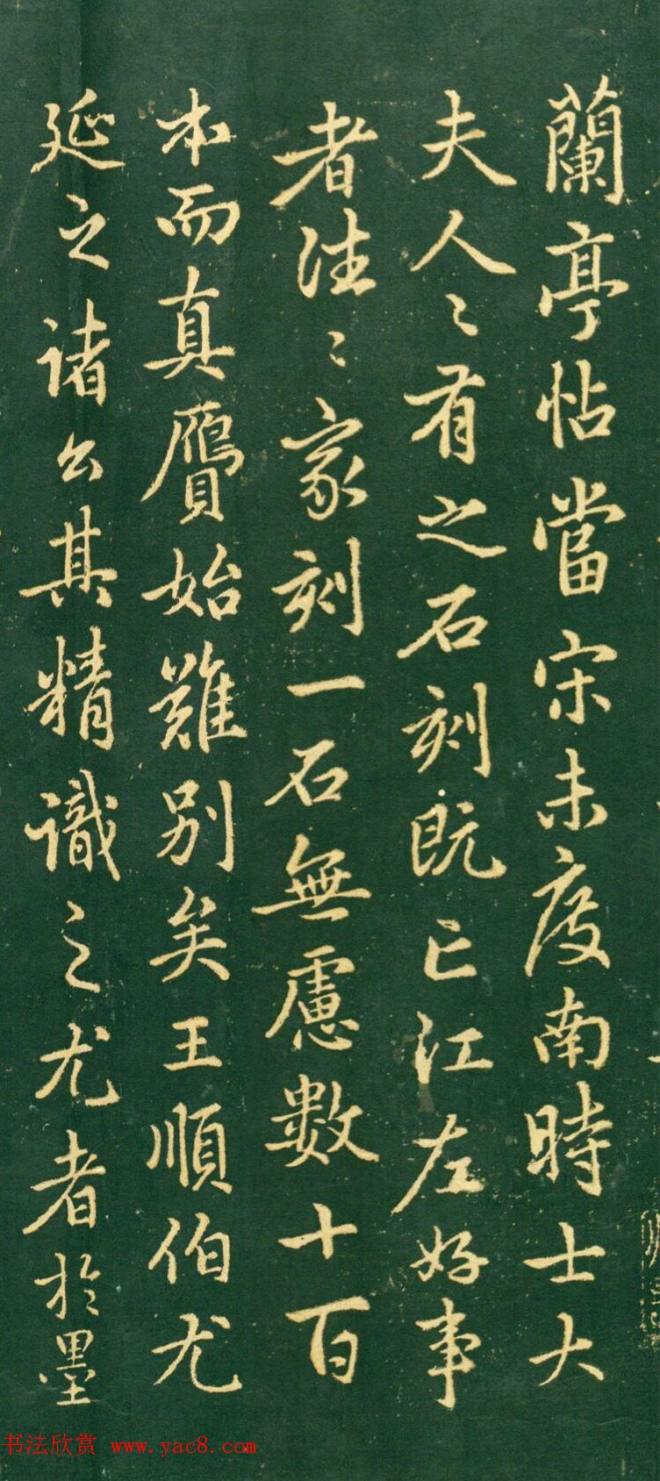 蘭亭帖當宋未度南時士大
夫人〻有之石刻既亡江左好事
者往〻家刻一石無慮數十百
本而真贗始難别矣王順伯尤
延之諸公其精識之尤者於墨
书法欣赏 www.yac8.com